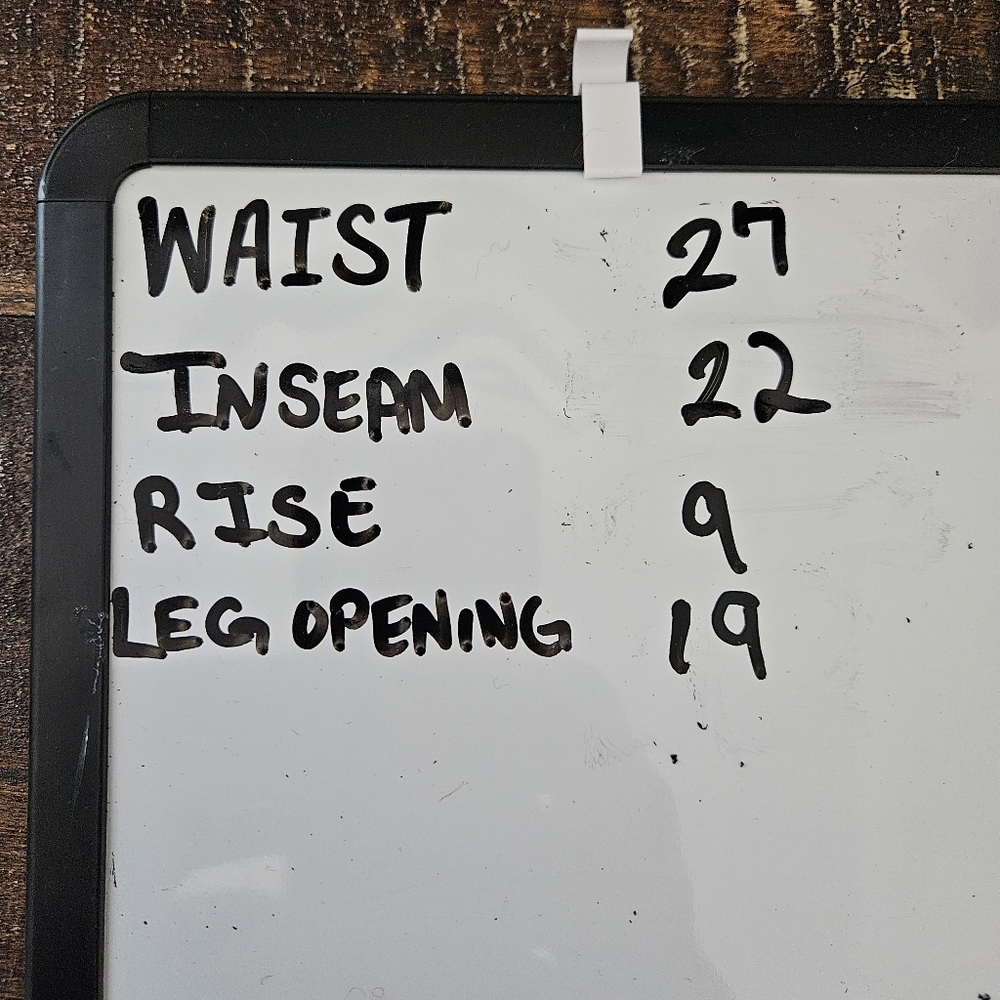 WAIST 27
INSEAM 22
RISE 9
LEG OPENING 19